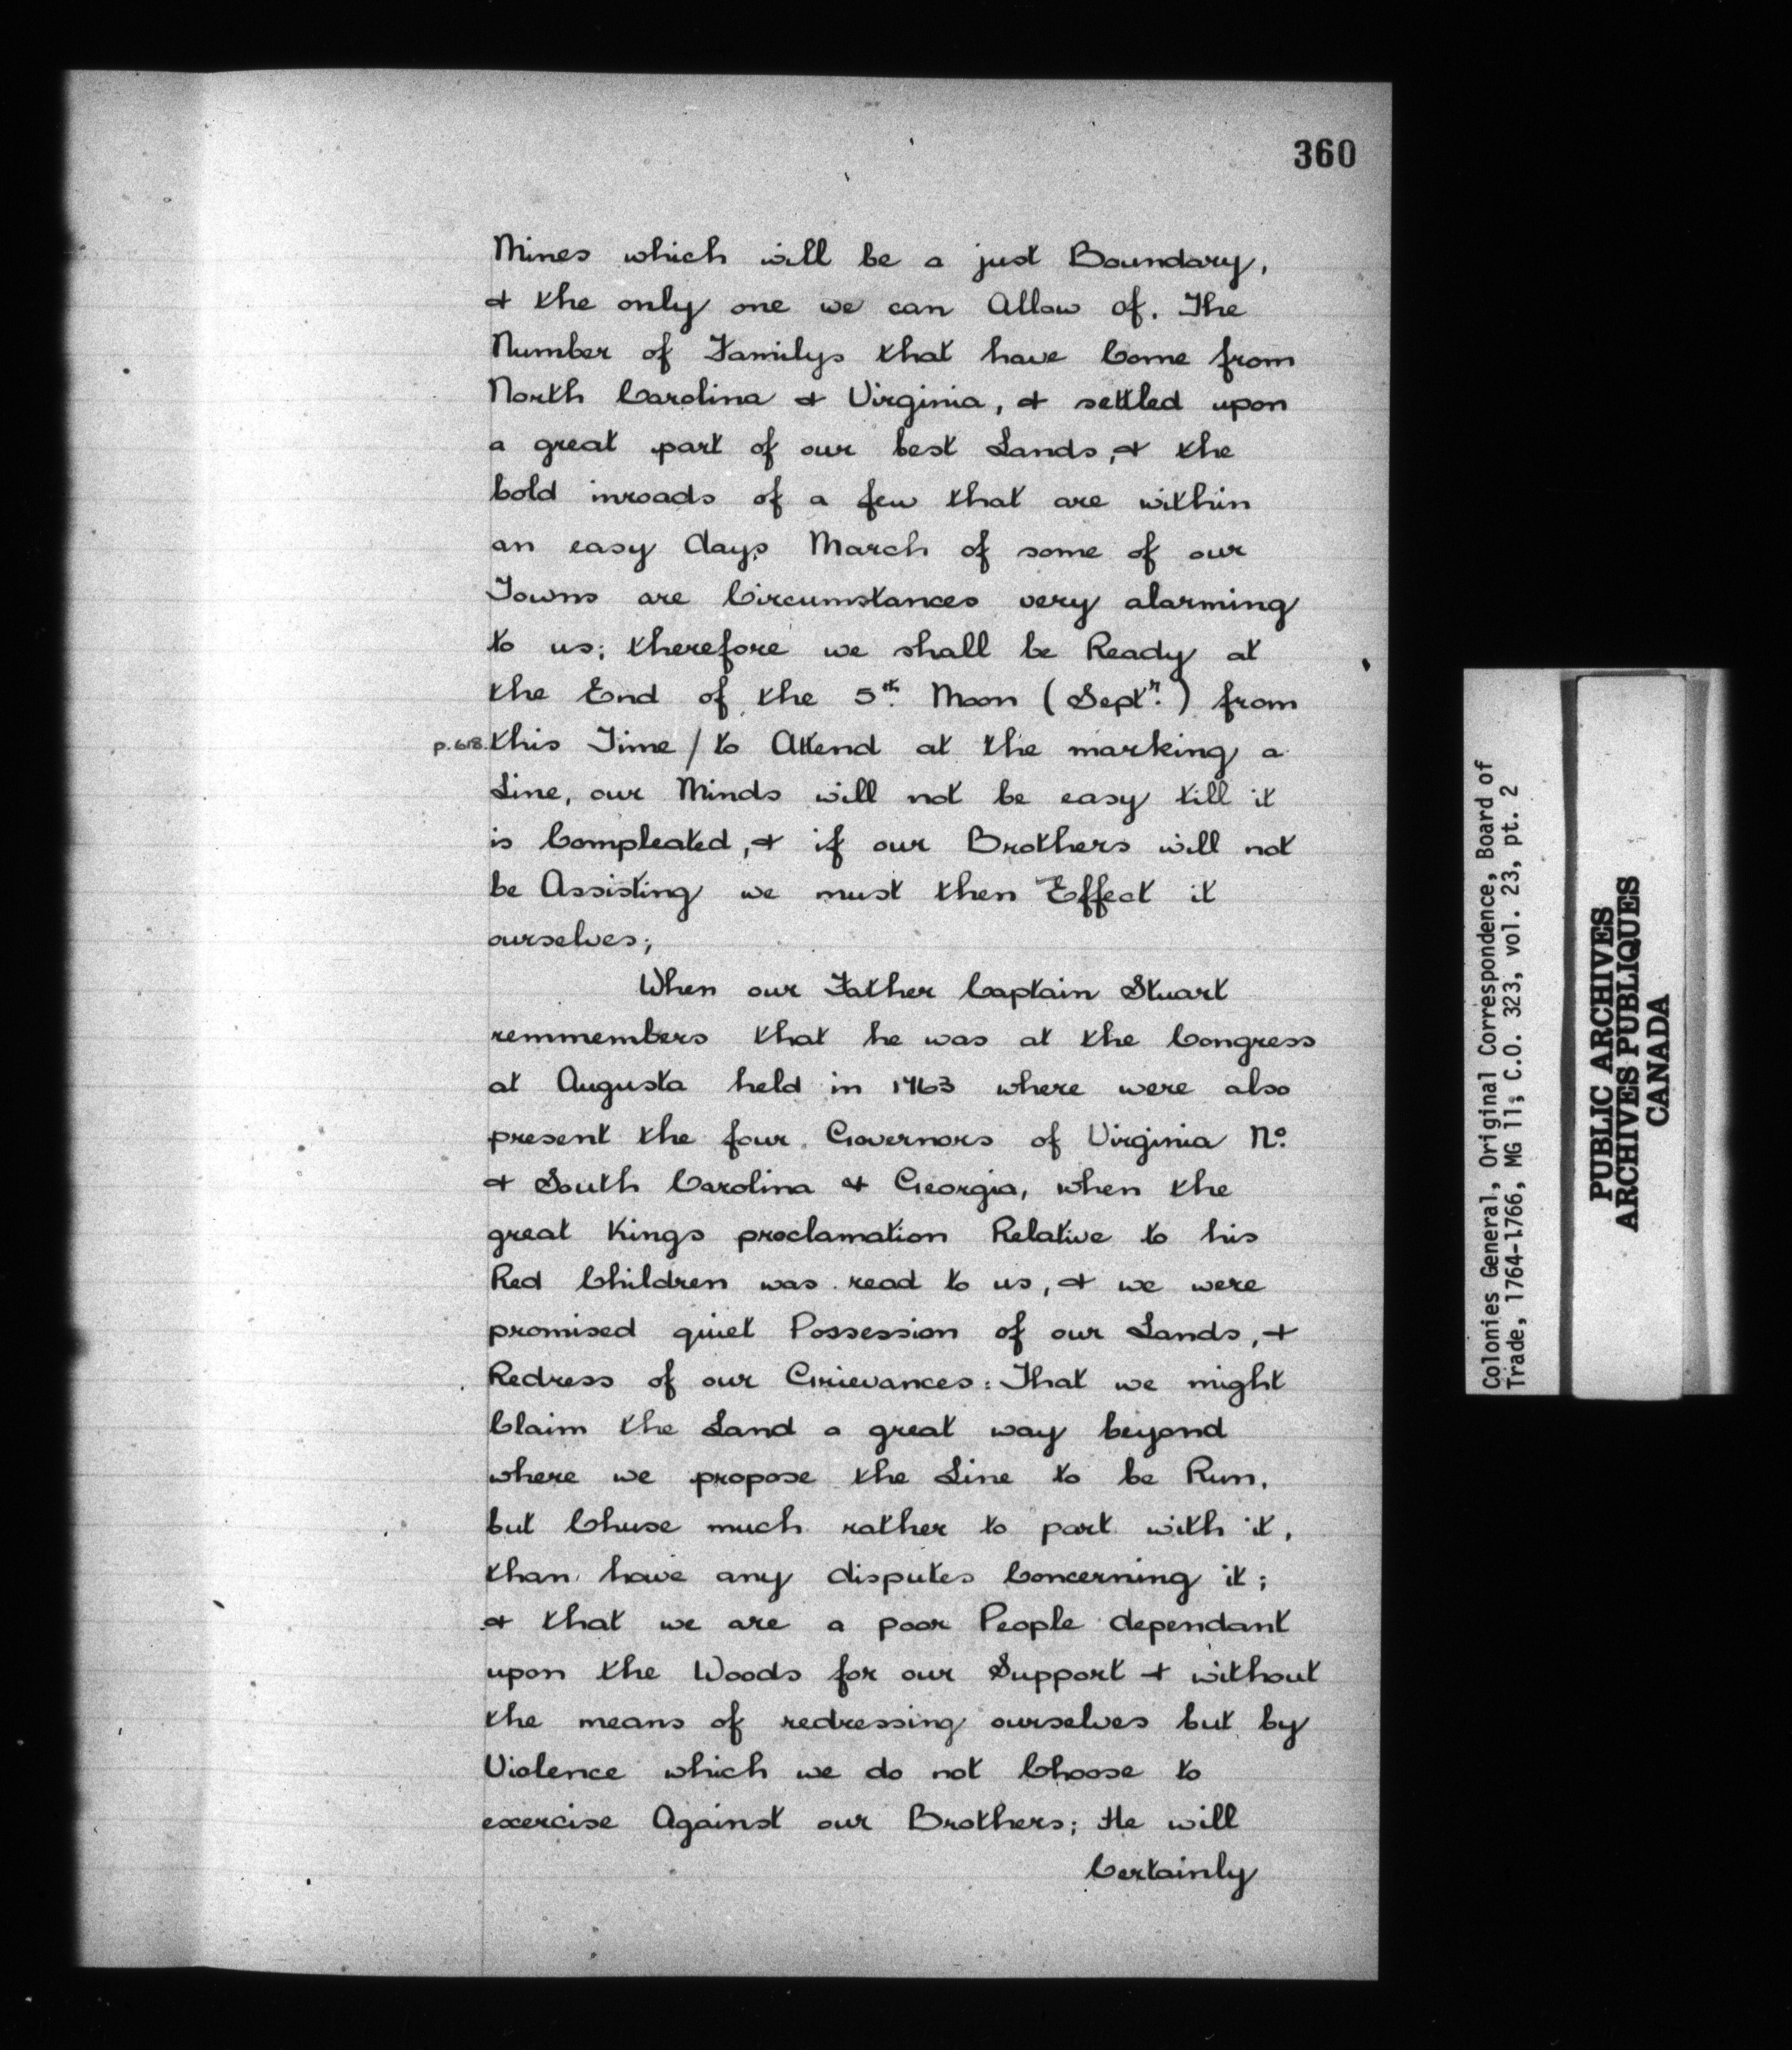 360
Mines which will be a just Boundary,
& the only one we can Allow of. The
Number of Familys that have Come from
North Carolina & Virginia, & settled upon
a great part of our best Lands, & the
bold inroads of a few that are within
an easy days March of some of our
Towns are Circumstances very alarming
to us; therefore we shall be Ready at
the End of the 5th. Moon (Septr.) from
p.618. this Time / to Attend at the marking a
Line, our Minds will not be easy till it
is Compleated, & if our Brothers will not
be Assisting we must then Effect it
ourselves;
When our Father Captain Stuart
remmembers that he was at the Congress
at Augusta held in 1763 where were also
present the four Governors of Virginia No.
& South Carolina & Georgia, when the
great Kings proclamation Relative to his
Red Children was read to us, & we were
promised quiet Possession of our Lands, &
Redress of our Grievances: That we might
Claim the Land a great way beyond
where we propose the Line to be Run,
but Chuse much rather to part with it,
than have any disputes Concerning it;
& that we are a poor People dependant
upon the Woods for our Support & without
the means of redressing ourselves but by
Violence which we do not Choose to
exercise Against our Brothers; He will
Certainly
Colonies General, Original Correspondence, Board of
Trade, 1764-1766, MG 11, C.O. 323, vol. 23, pt. 2
PUBLIC ARCHIVES
ARCHIVES PUBLIQUES
CANADA